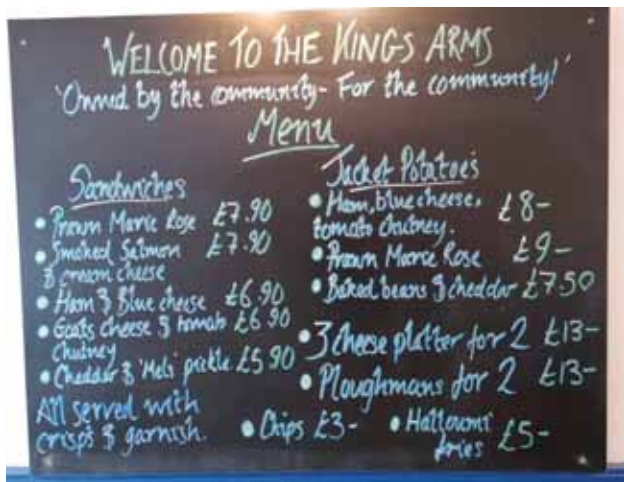 WELCOME TO THE KINGS ARMS
'Owned by the community - For the community!'
Menu
Sandwiches
• Prawn Marie Rose £7.90
• Smoked Salmon £7.90
& cream cheese
• Ham & Blue cheese £6.90
• Goats cheese & tomato £6.90
chutney
• Cheddar & 'Mels' pickle £5.90
All served with
crisps & garnish.
Jacket Potatoes
• Ham, blue cheese,
tomato chutney. £8-
• Prawn Marie Rose £9-
• Baked beans & cheddar £7.50
• 3 Cheese platter for 2 £13-
• Ploughmans for 2 £13-
• Chips £3-
• Halloumi
fries £5-